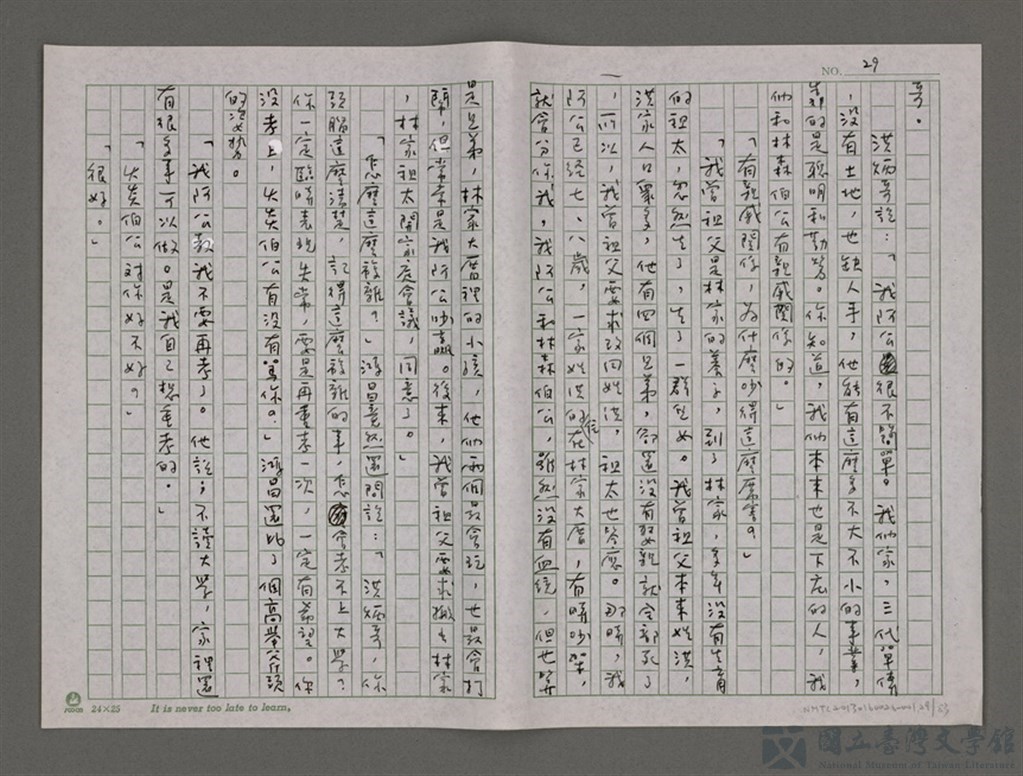 NO. 29
哥。
洪炳哥說：「我阿公很不簡單。我們家，三代單傳
，沒有土地，也缺人手，他能有這麼多不大不小的事業，
靠的是聰明和勤勞。你知道，我們本來也是下庄的人，我
們和林森伯公有親戚關係的。」
「有親戚關係，為什麼吵得這麼厲害？」
「我曾祖父是林家的養子，到了林家，多年沒有生育
的祖太，忽然生了，生了一群兒女。我曾祖父本來姓洪，
洪家人口眾多，他有四個兄弟，都還沒有娶親就全部死了
，所以，我曾祖父要求改回姓洪，祖太也答應。那時，我
阿公已經七、八歲，一家姓洪的住在林家大厝，有時吵架，
就會分你我，我阿公和林森伯公，雖然沒有血統，但也算
是兄弟，林家大厝裡的小孩，他們兩個最會玩，也最會打
鬧，但常常是我阿公吵贏。後來，我曾祖父要求搬出林家
，林家祖太開家庭會議，同意了。」
「怎麼這麼複雜？」鴻昌竟然還問說：「洪炳哥，你
頭腦這麼清楚，記得這麼複雜的事，怎會考不上大學？
你一定臨時表現失常，要是再重考一次，一定有希望。你
沒考上，火炎伯公有沒有罵你？」鴻昌還比了個高舉斧頭
的姿勢。
「我阿公教我不要再考了。他說；不讀大學，家裡還
有很多事可以做。是我自己想重考的。」
「火炎伯公對你好不好？」
「很好。」
24×25 It is never too late to learn.
國立臺灣文學館
National Museum of Taiwan Literature